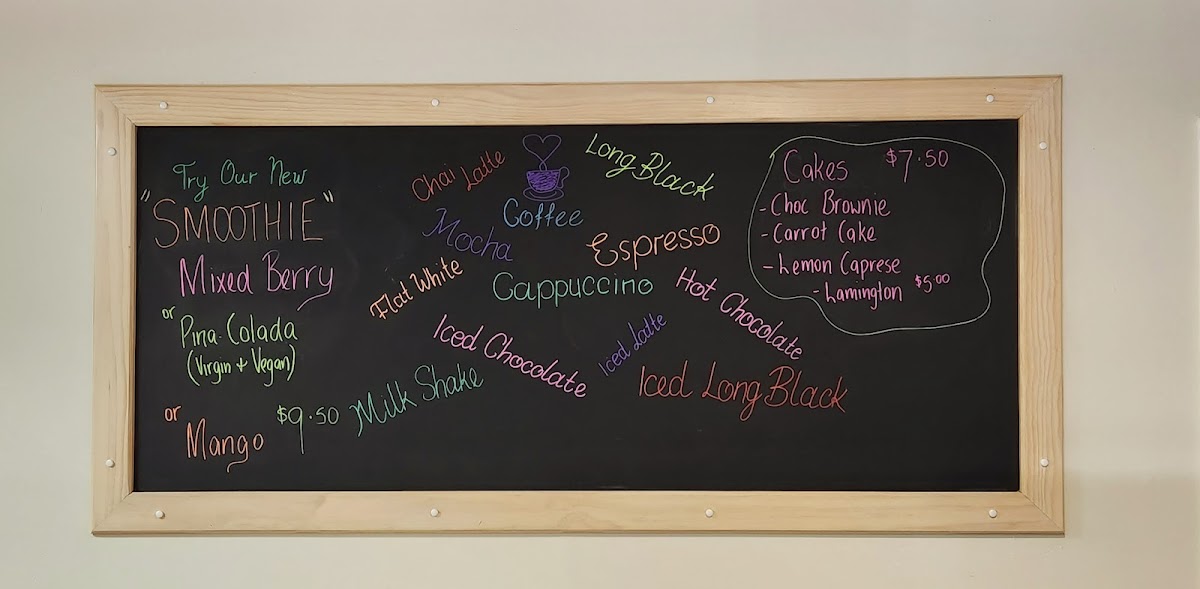 Try Our New
"SMOOTHIE"
Mixed Berry
or
Pina-Colada
(Virgin + Vegan)
or
Mango $9.50
Chai Latte
Coffee
Long Black
Mocha
Espresso
Flat White
Cappuccino
Hot Chocolate
Iced Chocolate
Iced Latte
Milk Shake
Iced Long Black
Cakes $7.50
- Choc Brownie
- Carrot Cake
- Lemon Caprese
- Lamington $5.00